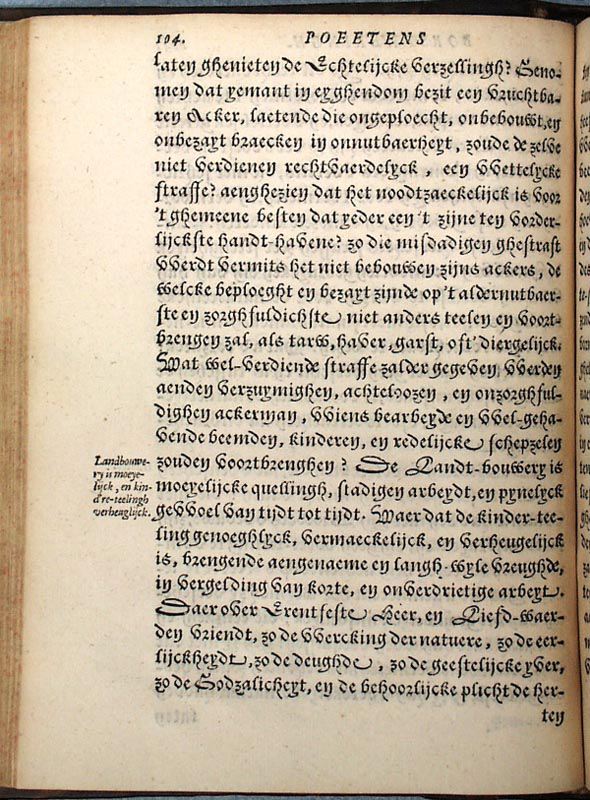 104. POEETENS
laten ghenieten de Echtelijcke verzellingh? Geno-
men dat yemant in eyghendom bezit een vruchtba-
ren Acker, laetende die ongeploecht, onbebouwt, en
onbezayt braecken in onnutbaerheyt, zoude de zelve
niet verdienen rechtvaerdelyck, een VVettelycke
straffe? aenghezien dat het noodtzaeckelijck is voor
't ghemeene besten dat yeder een 't zijne ten vorder-
lijckste handt-havene? zo die misdadigen ghestraft
VVerdt vermits het niet bebouwen zijns ackers, de
welcke beploeght en bezayt zijnde op 't aldernutbaer-
ste en zorghfuldichste niet anders teelen en voort-
brengen zal, als tarw, haver, garst, oft' diergelijck.
Wat wel-verdiende straffe zalder gegeven VVerden
aenden verzuymighen, achteloozen, en onzorghful-
dighen ackerman, VViens bearbeyde en VVel-geha-
vende beemden, kinderen, en redelijcke schepzelen
zouden voortbrenghen? De Landt-bouwery is
moeyelijcke quellingh, stadigen arbeydt, en pynelyck
geVVoel van tijdt tot tijdt. Waer dat de kinder-tee-
ling genoeghlyck, vermaeckelijck, en verheugelijck
is, brengende aengenaeme en langh-wyle vreughde,
in vergelding van korte, en onverdrietige arbeyt.
Daer over Erentfeste Heer, en Liefd-waer-
den vriendt, zo de VVercking der natuere, zo de eer-
lijckheydt, zo de deughde, zo de geestelijcke yver,
zo de Godzalicheyt, en de behoorlijcke plicht de her-
ten
Landbouwe-
ry is moeye-
lijck, en kin-
d're-teelingh
verheuglijck.